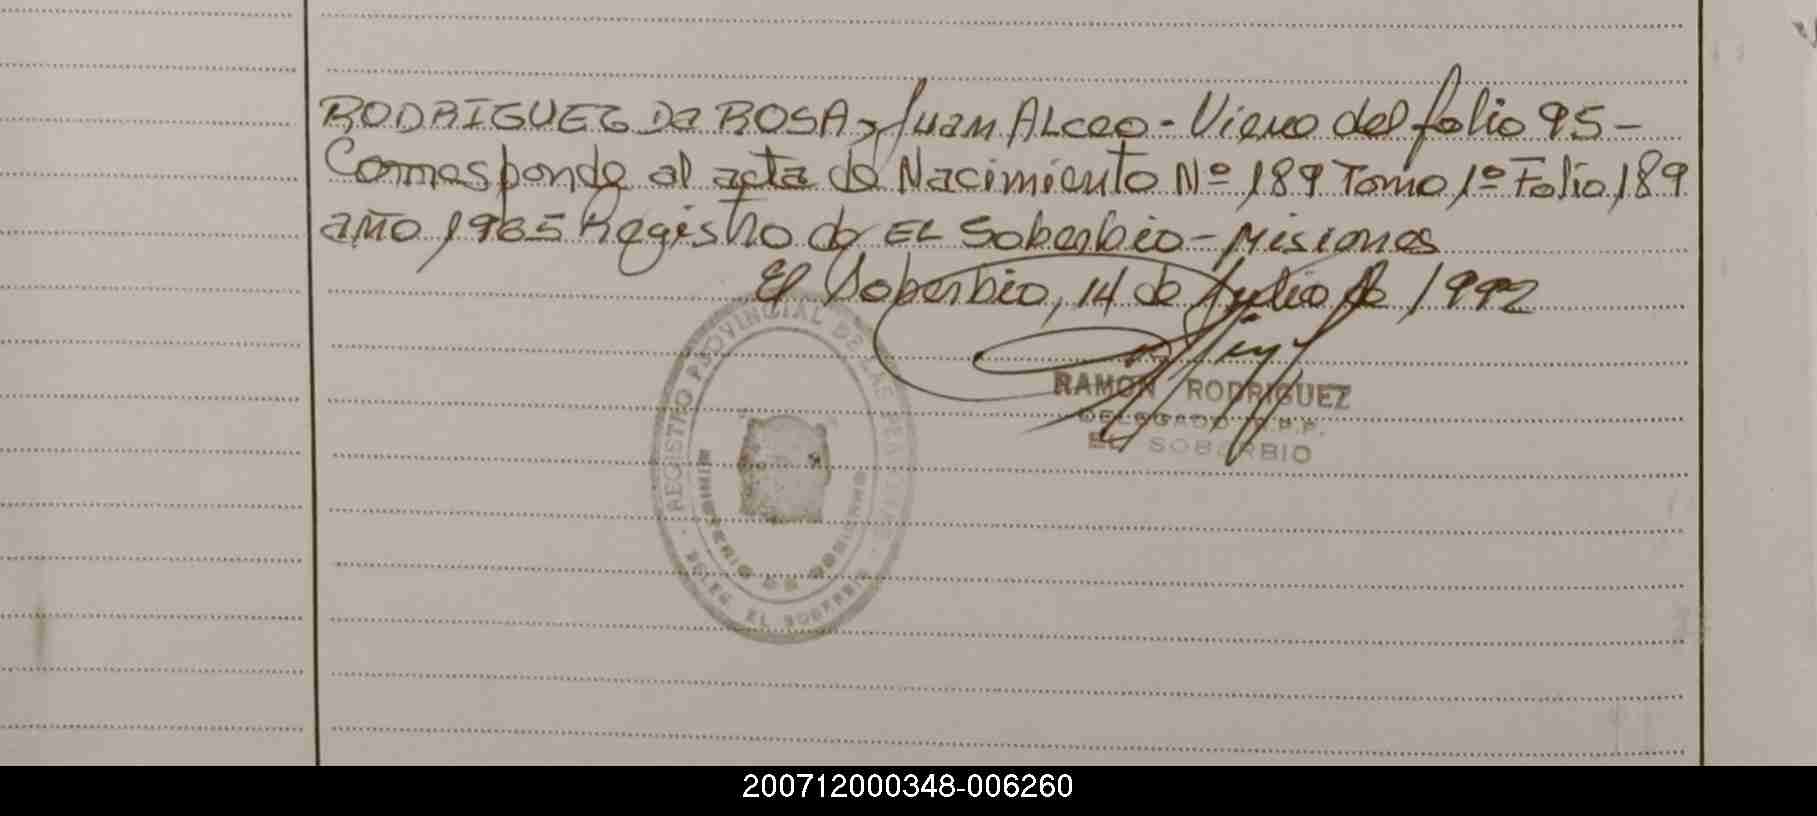 RODRIGUEZ De ROSA, Juan ALCeo - Viene del folio 95 -
Corresponde al acta de Nacimiento Nº 189 Tomo 1º Folio 189
año 1985 Registro de EL Soberbio - Misiones
El Soberbio, 14 de Julio de 1992
RAMON RODRIGUEZ
DELEGADO R.P.P.
EL SOBERBIO
REGISTRO PROVINCIAL DE LAS PERSONAS
MINISTERIO DE GOBIERNO
DELEG. EL SOBERBIO
200712000348-006260